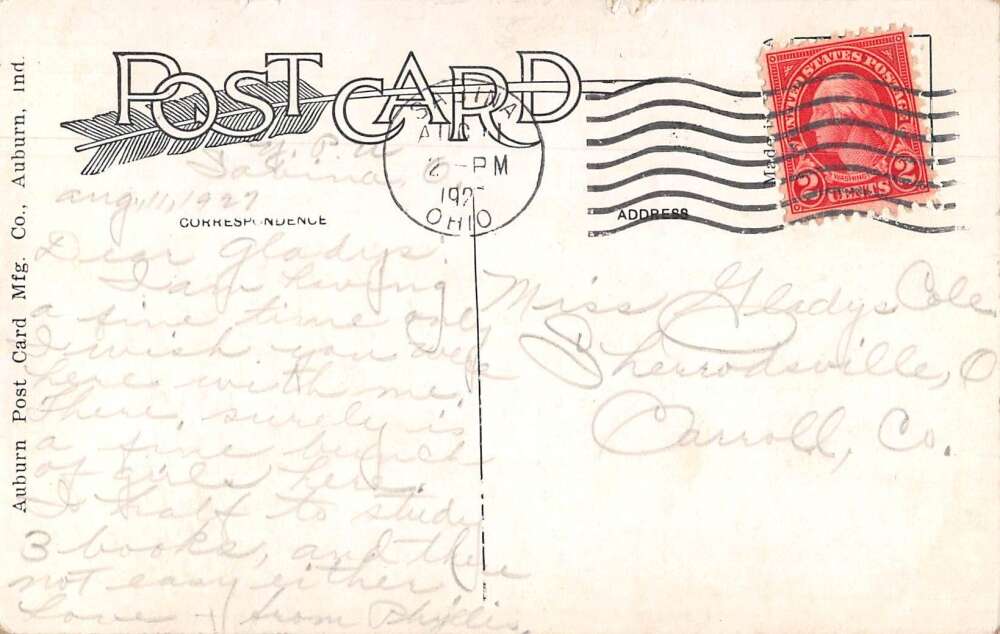 POST CARD
Auburn Post Card Mfg. Co., Auburn, Ind.
SABINA
AUG 11
2 - PM
192
OHIO
UNITED STATES POSTAGE
WASHINGTON
2 CENTS 2
Made in
CORRESPONDENCE
ADDRESS
Y. P. C
Sabina, O.
Aug, 11, 1927
Dear Gladys,
I am having
a fine time and
I wish you were
here with me.
There, surely is
a fine bunch
of girls here.
I haft to study
3 books, and there
not easy either
Love - from Phyllis,
Miss Gladys Cole
Sherrodsville, O
Carroll, Co.